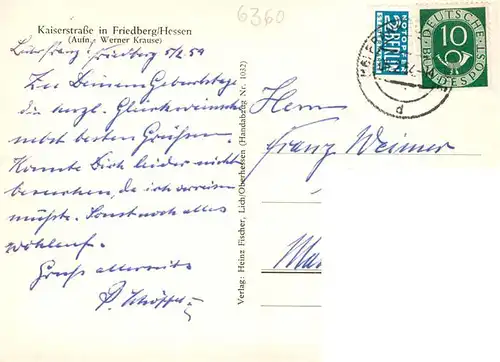 6360
Kaiserstraße in Friedberg/Hessen
(Aufn.: Werner Krause)
Lieber Franz! Friedberg 5/2.59
Zu Deinem Geburtstage
die herzl. Glückwünsche
nebst besten Grüßen.
Konnte Dich leider nicht
besuchen, da ich verreisen
müßte. Sonst noch alles
wohlauf.
Gruß allerseits
Verlag: Heinz Fischer, Lich/Oberhessen (Handabzug Nr. 1032)
NOTOPFER
2 BERLIN
STEUERMARKE
DEUTSCHE
BUNDESPOST
10
d
Herrn
Franz Weimer